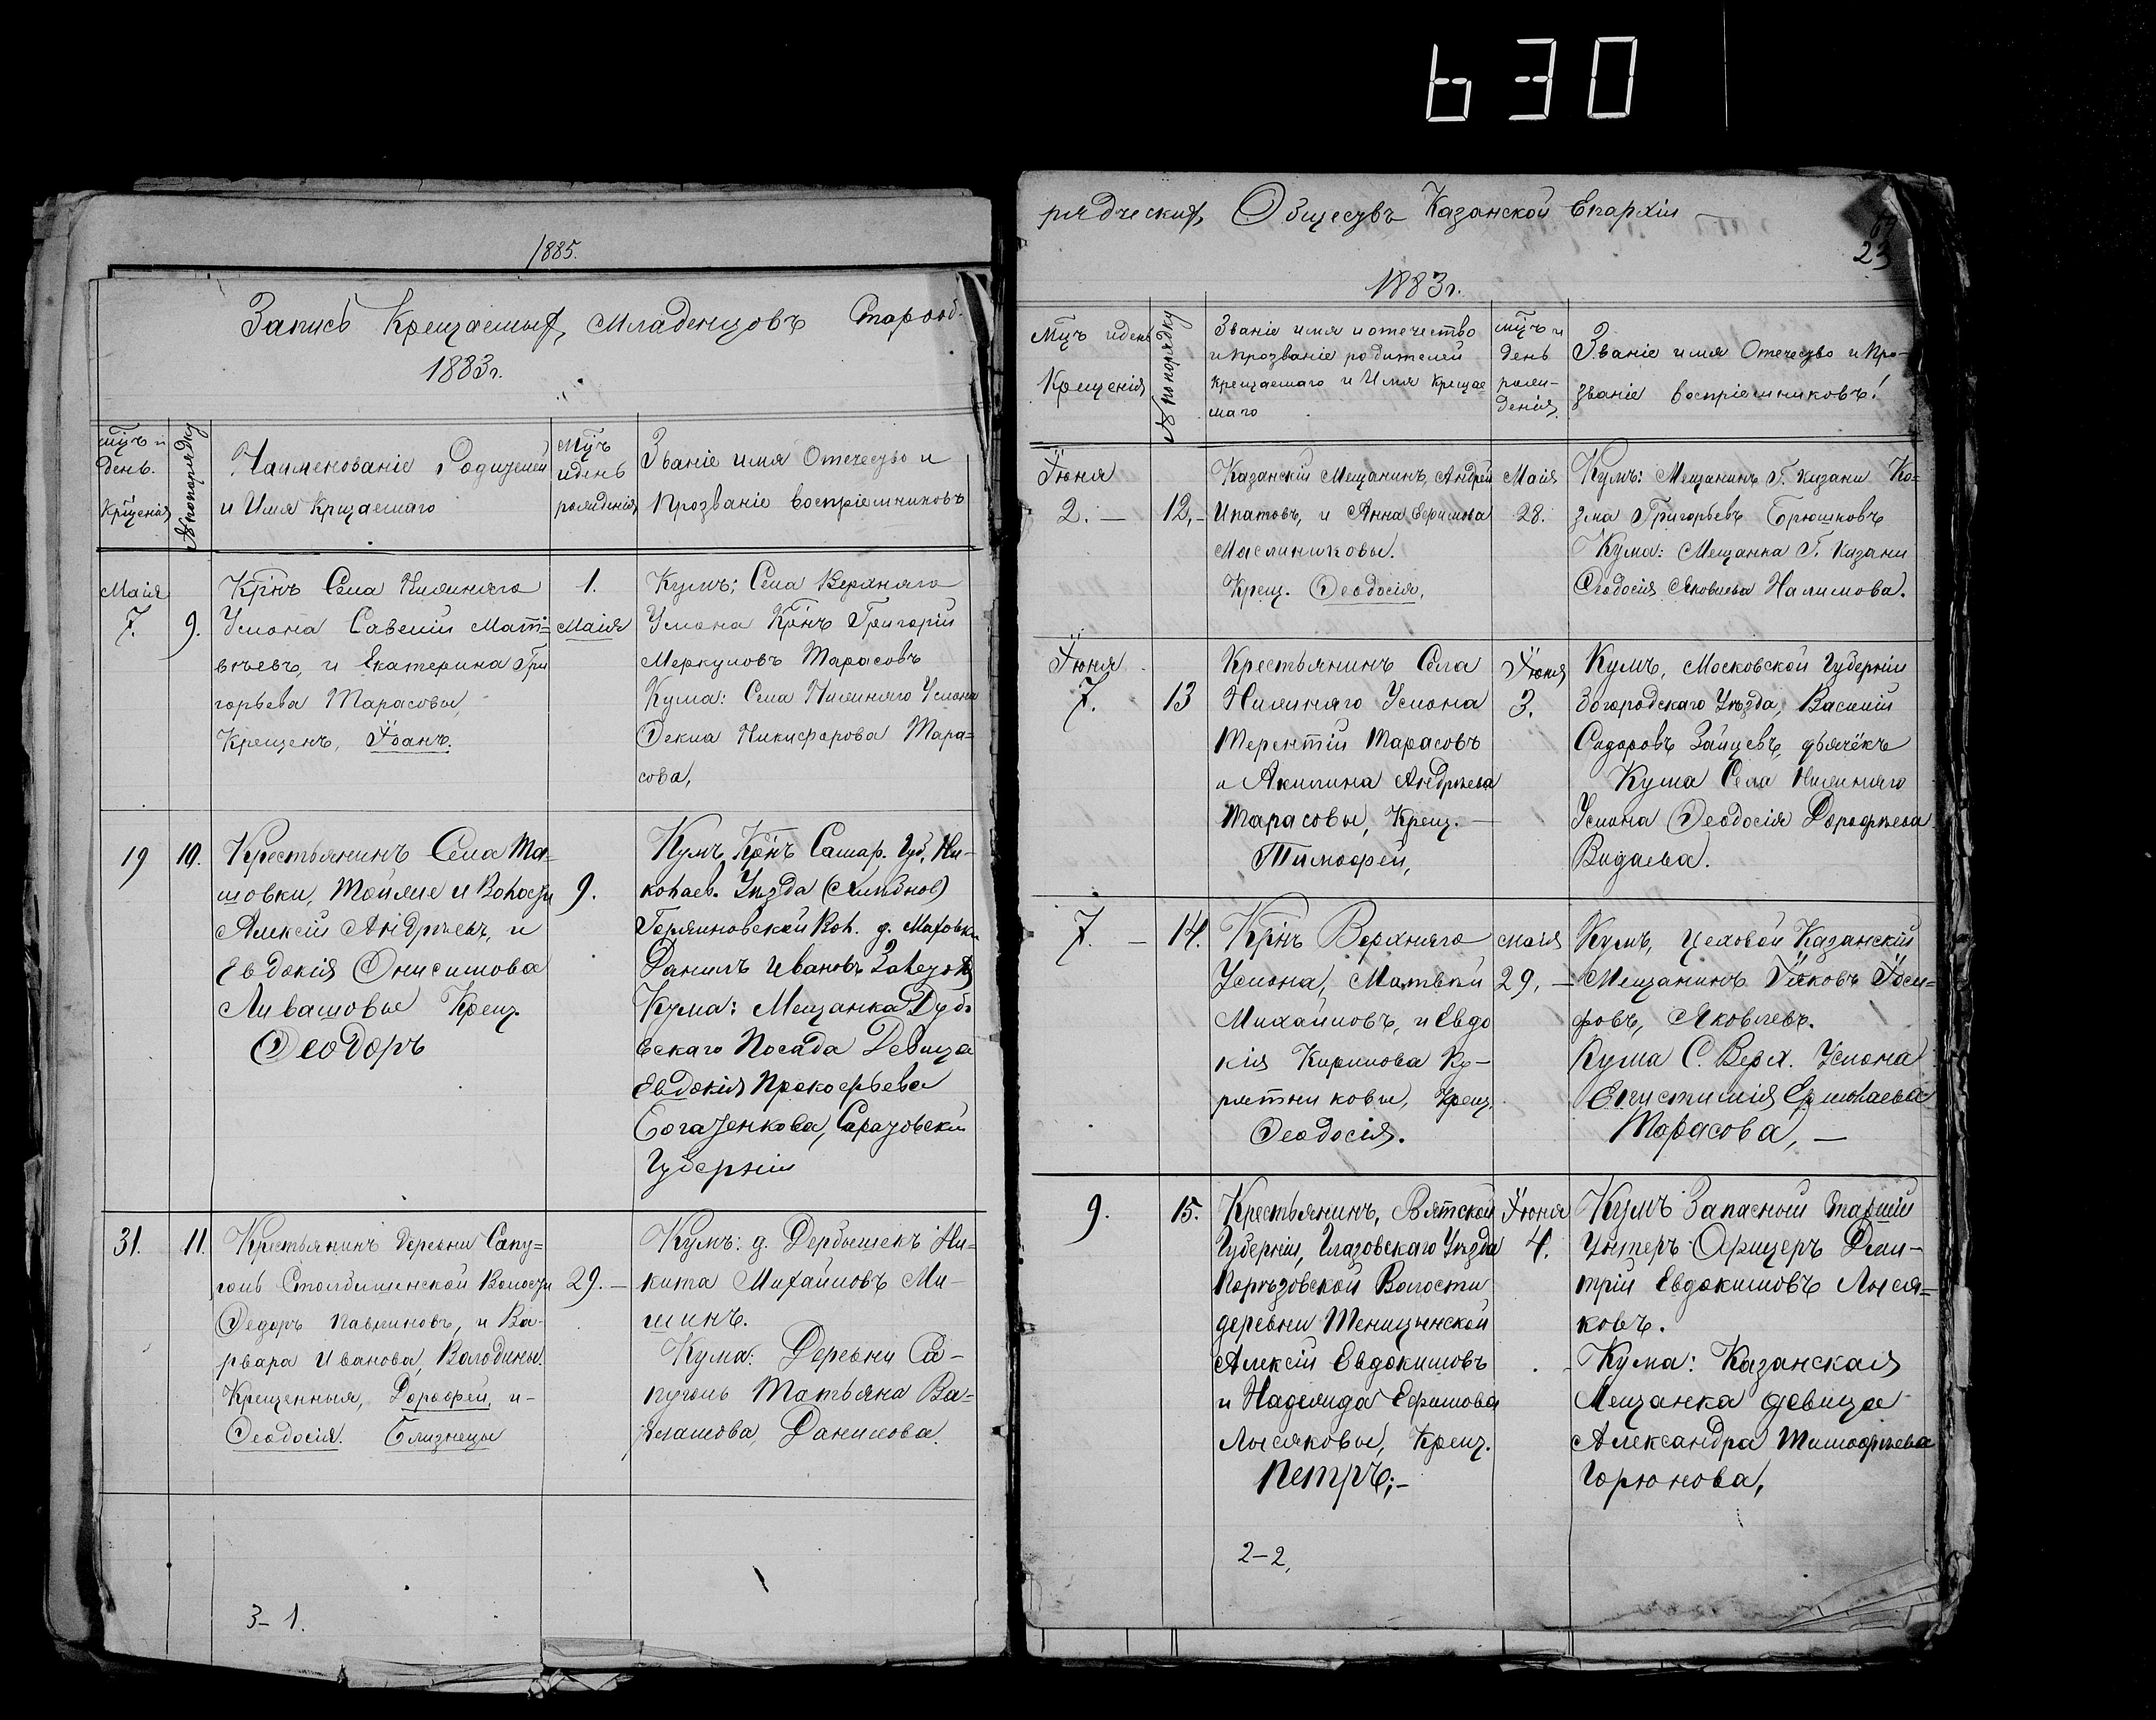 630
1885.
Запись Крещаемых, Младенцовъ Староо8-
1883г.
мцъ и день. Крщенія
№ по порядку
Наименованіе Родителей
и Имя Крщаемаго
Мцъ и день рожденія
Званіе имя Отечество и
Прозваніе воспріемниковъ
Маія
7.
9.
Крнъ Села Нижняго
Услона Савелій Мат=
вѣевъ, и Екатерина Гри
горьева Тарасовы,
Крещенъ, Іоанъ.
1.
Маія
Кумъ: Села Верхняго
Услона Крнъ Григорій
Меркуловъ Тарасовъ
Кума: Села Нижняго Услона
Ѳекла Никифорова Тара=
сова,
19
10.
Крестьянинъ Села Та=
шовки, Тойже и Волости
Алексій Андрѣевъ, и
Евдокія Онисимова
Ливашовы Крещ.
Ѳеодоръ
9.
Кумъ Крнъ Самар. Губ, Ни-
колаев. Уѣзда
Вол. д. Маховки
Данилъ Ивановъ
Кума: Мещанка Дубо
вскаго Посада Девица
Евдокія Прокофьева
Богатенкова, Саратовской
Губерніи
31.
11.
Крестьянинъ деревни Сапу=
голь Столбищенской Волости
Ѳедоръ Павлиновъ, и Ва-
рвара Иванова, Володины.
Крещенныя, Дорофей, и-
Ѳеодосія. Близнецы
29.-
Кумъ: д. Дербышекъ Ни-
кита Михайловъ Ми-
шинъ.
Кума: Деревни Са-
пуголь Татьяна Ва-
Данилова.
3-1.
рядческих, Обществъ Казанской Епархіи
23
1883г.
Мцъ и день
Крещенія
№ по порядку
Званіе имя и отечество
и прозваніе родителей
крещаемаго и Имя крещае
маго
мцъ и
день
рож-
денія.
Званіе имя Отечество и Про-
званіе воспріемниковъ!
Іюня
2.-
12,-
Казанскій Мещанинъ, Андрей
Ипатовъ, и Анна Ефимова
Масленниковы.
Крещ. Ѳеодосія,
Маія
28.
Кумъ: Мещанинъ Г. Казани Ко=
зма Григорьевъ Брюшковъ
Кума: Мещанка Г. Казани
Ѳеодосія Яковлева Налимова.
Іюня
7.
13
Крестьянинъ Села
Нижняго Услона
Терентій Тарасовъ
и Акилина Андрѣева
Тарасовы, Крещ.-
Тимофей,
Іюня
3.
Кумъ, Московской Губерніи
Богородскаго Уѣзда, Василій
Сидоровъ Зайцевъ, дьячёкъ
Кума Села Нижняго
Услона Ѳеодосія Дорофѣева
Видаева.
7.-
14.
Крнъ Верхняго
Услона, Матвѣй
Михайловъ, и Евдо
кія Кирилова Ку-
рятниковы, Крещ.
Ѳеодосія.
Маія
29,-
Кумъ, Цеховой Казанскій
Мещанинъ Іяковъ Іоси=
фовъ, Яковлевъ.
Кума С. Верх. Услона
Епистимія Ермолаева
Тарасова,-
9.
15.
Крестьянинъ, Вятской
Губерніи, Глазовскаго Уѣзда
Порѣзовской Волости
деревни Теницынской
Алексій Евдокимовъ
и Надежда Ефимова
Лысяковы, Крещ.
Петръ;-
Іюня
4.
Кумъ Запасный Старшій
Унтеръ-Офицеръ Дми-
трій Евдокимовъ Лыся=
ковъ.
Кума: Казанская
Мещанка девица
Александра Тимофѣева
Горюнова,
2-2,